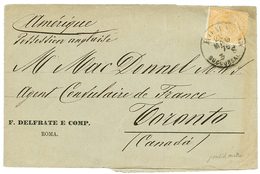 Amérique
Possession anglaise
M. Mac Donnel
Agent Consulaire de France
Toronto
(Canada)
F. DELFRATE E COMP.
ROMA.